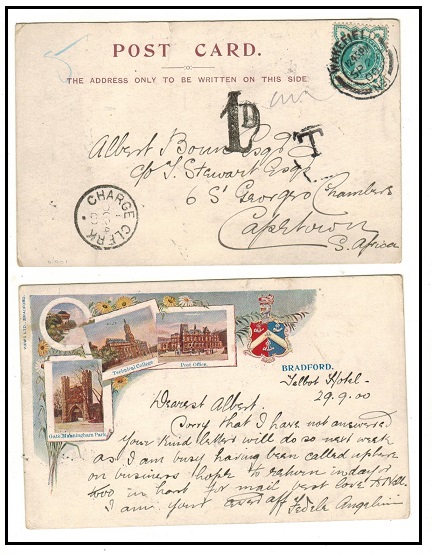 POST CARD.
THE ADDRESS ONLY TO BE WRITTEN ON THIS SIDE
1D
T
Albert Esqr
c/o T. Stewart Esqr
6 St Georges Chambers
Capetown
S. Africa
CHARGE CLERK
Technical College
Post Office.
Gate, Manningham Park.
BRADFORD.
Talbot Hotel -
29.9.00
Dearest Albert.
Sorry that I have not answered
your kind letters will do so next week
as I am busy having been called up here
on business hope to return in day or
two in for mail best love
I am your aff
Fedele Angelini